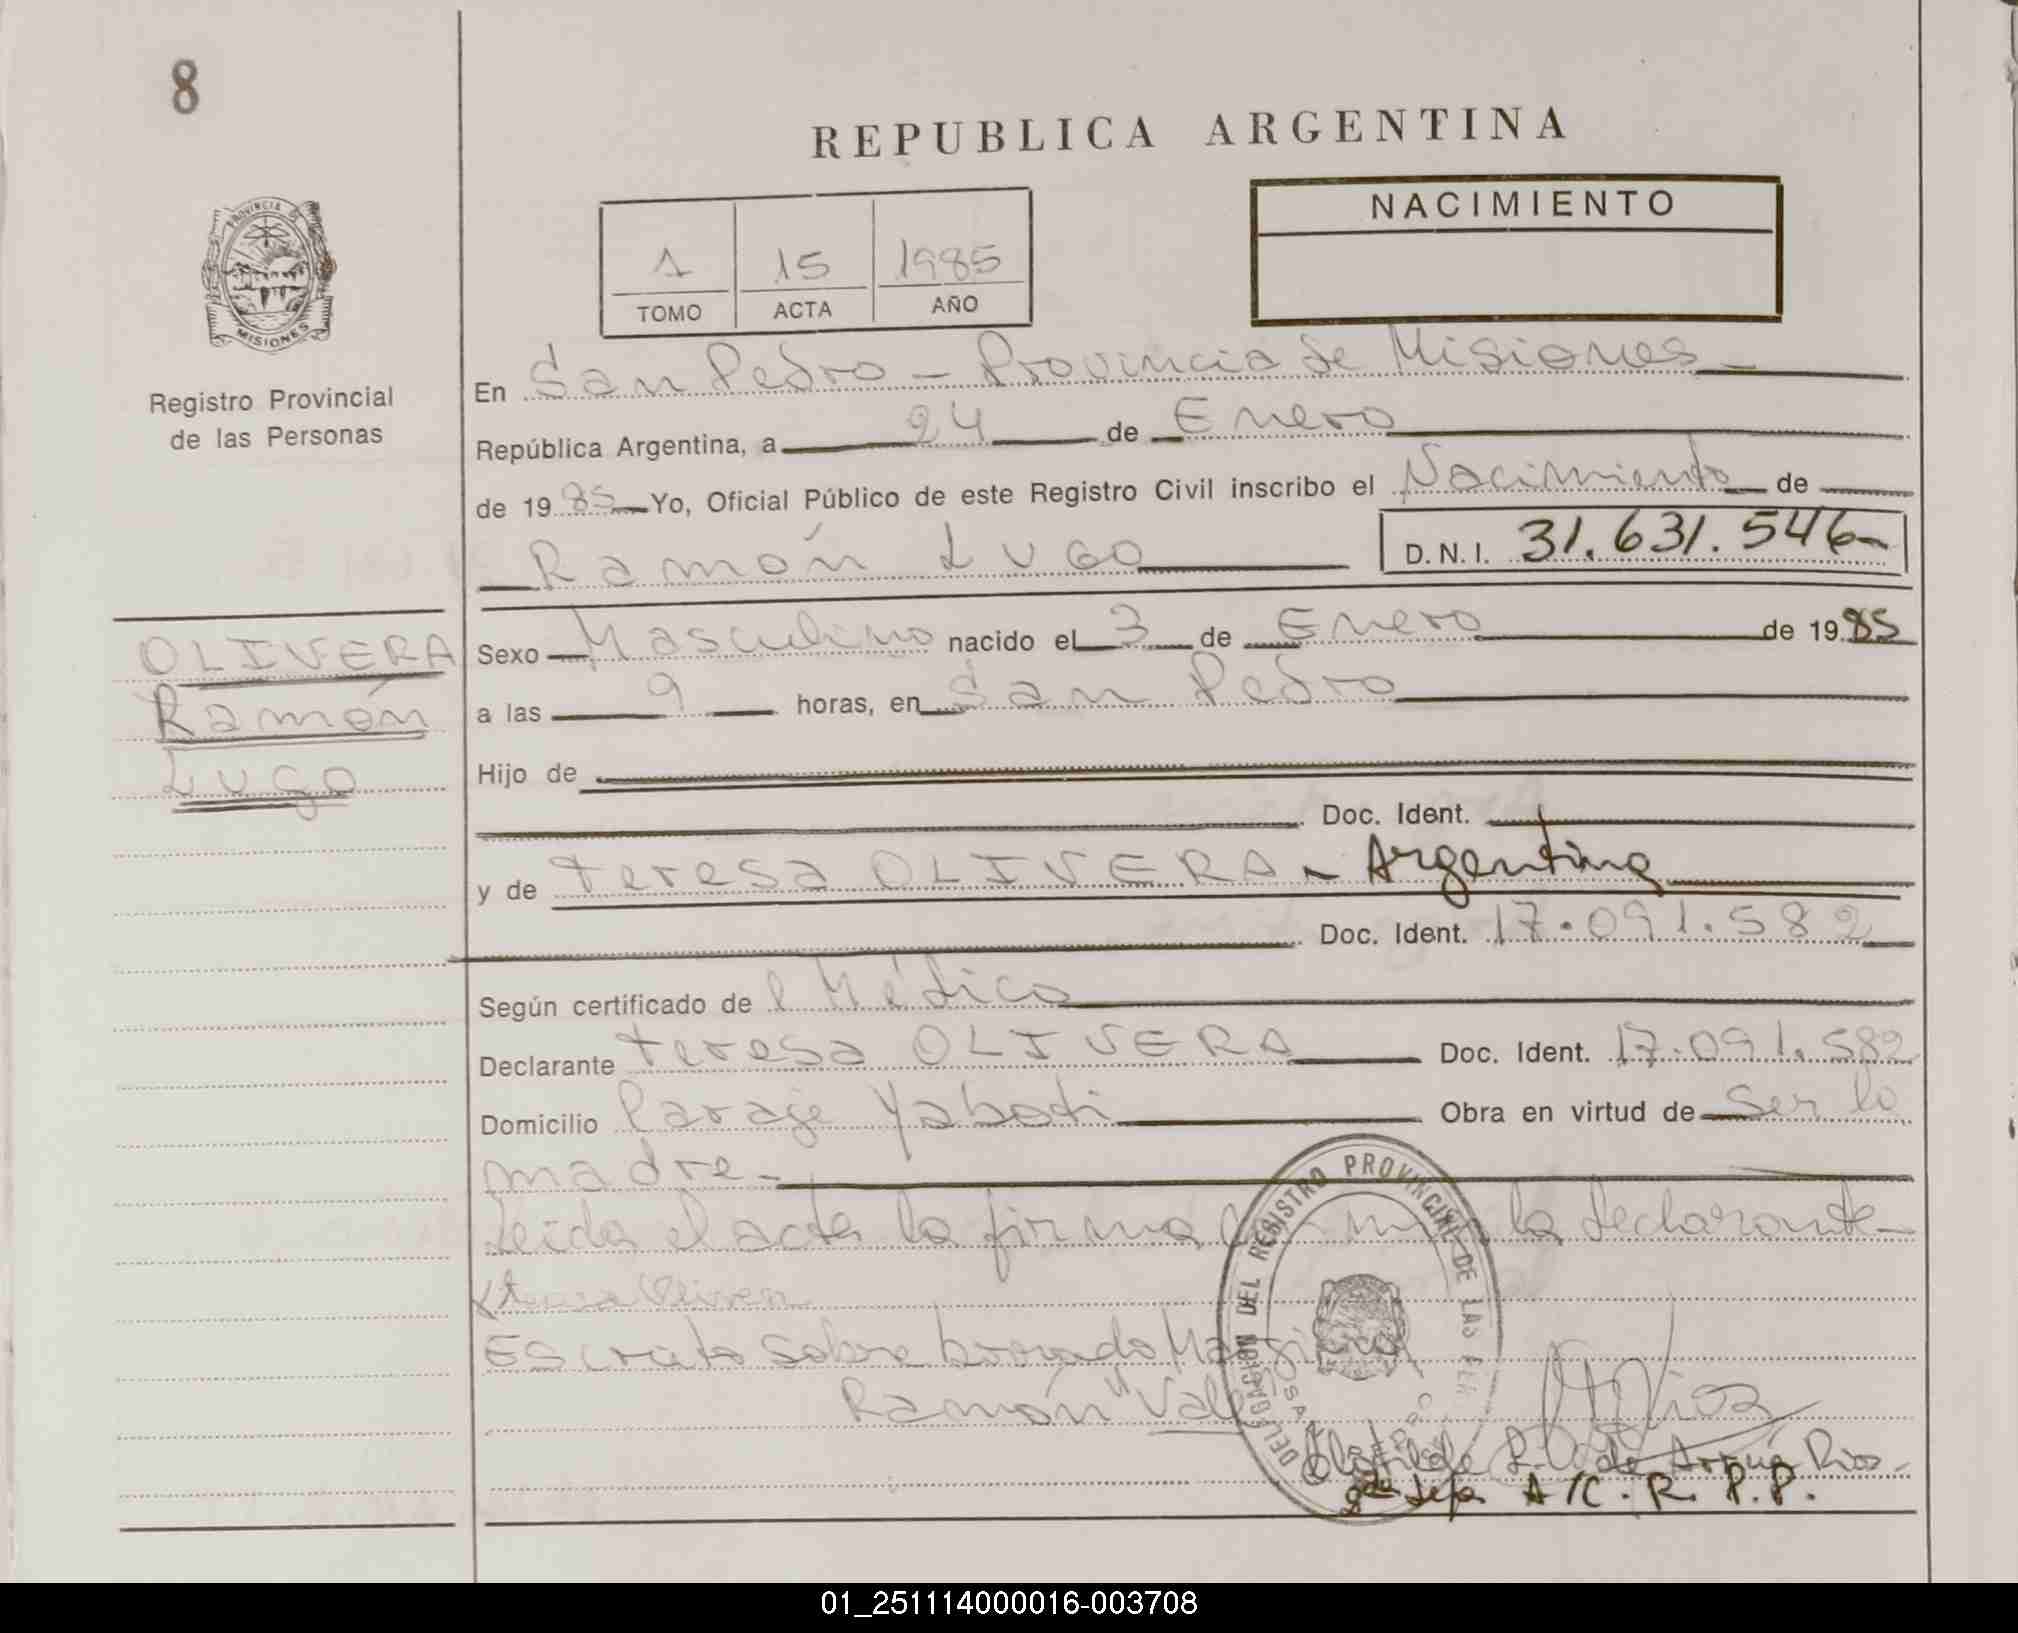 8
REPUBLICA ARGENTINA
PROVINCIA DE
MISIONES
Registro Provincial
de las Personas
1 15 1985
TOMO ACTA AÑO
NACIMIENTO
En San Pedro - Provincia de Misiones -
República Argentina, a 24 de Enero
de 1985 Yo, Oficial Público de este Registro Civil inscribo el Nacimiento de
Ramón Lugo D.N.I. 31.631.546-
OLIVERA
Ramón
Lugo
Sexo Masculino nacido el 3 de Enero de 1985
a las 9 horas, en San Pedro
Hijo de
Doc. Ident.
y de Teresa OLIVERA - Argentina
Doc. Ident. 17.091.582
Según certificado de l Médico
Declarante Teresa OLIVERA Doc. Ident. 17.091.582
Domicilio Paraje Yaboti Obra en virtud de Ser la
madre -
Leida el acta la firma la declarante -
Escrito sobre borrado
Ramón" Vale
DELEGACION DEL REGISTRO PROVINCIAL DE LAS
Rios
A/C. R. P. P.
01_251114000016-003708